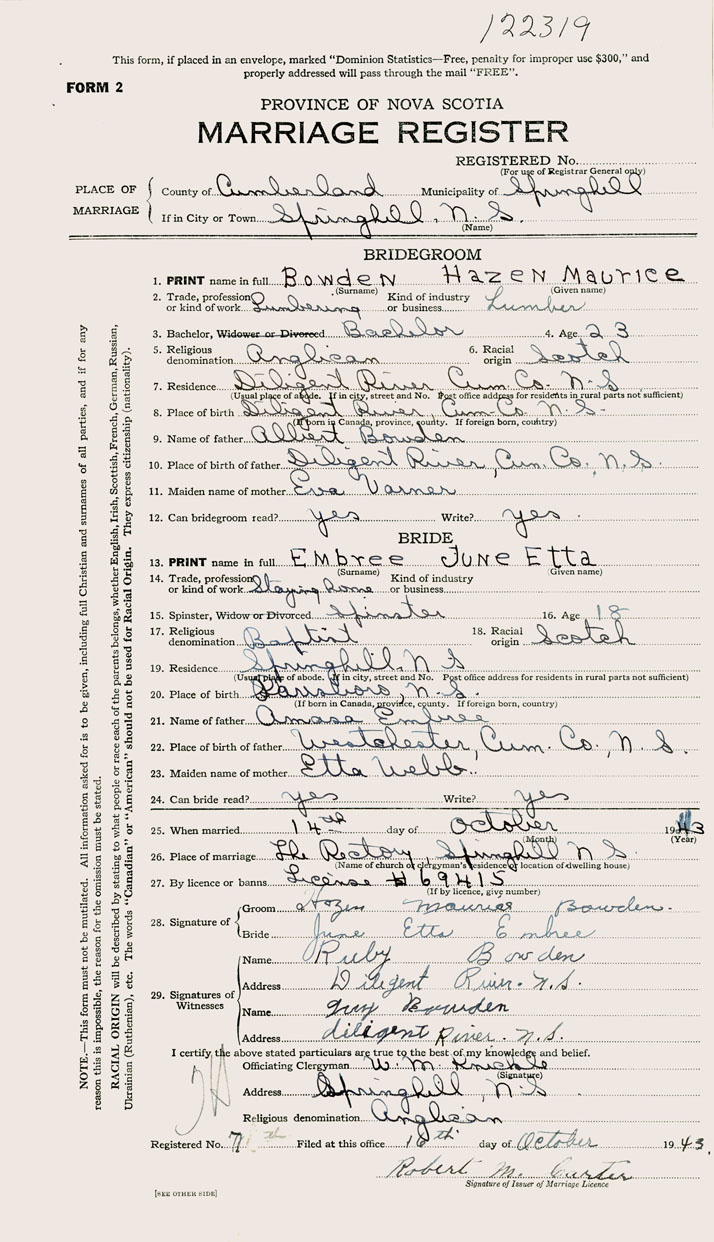 122319
This form, if placed in an envelope, marked "Dominion Statistics—Free, penalty for improper use $300," and
properly addressed will pass through the mail "FREE".
FORM 2
PROVINCE OF NOVA SCOTIA
MARRIAGE REGISTER
REGISTERED No.
(For use of Registrar General only)
PLACE OF MARRIAGE
County of Cumberland Municipality of Springhill
If in City or Town Springhill, N.S.
(Name)
BRIDEGROOM
1. PRINT name in full Bowden Hazen Maurice
(Surname) (Given name)
2. Trade, profession or kind of work Lumbering Kind of industry or business Lumber
3. Bachelor, Widower or Divorced Bachelor 4. Age 23
5. Religious denomination Anglican 6. Racial origin Scotch
7. Residence Diligent River Cum. Co. N.S
(Usual place of abode. If in city, street and No. Post office address for residents in rural parts not sufficient)
8. Place of birth Diligent River, Cum-Co. N.S-
(If born in Canada, province, county. If foreign born, country)
9. Name of father Albert Bowden
10. Place of birth of father Diligent River, Cum. Co., N.S.
11. Maiden name of mother Eva Varner
12. Can bridegroom read? yes Write? yes.
BRIDE
13. PRINT name in full Embree June Etta
(Surname) (Given name)
14. Trade, profession or kind of work Staying home Kind of industry or business
15. Spinster, Widow or Divorced Spinster 16. Age 18
17. Religious denomination Baptist 18. Racial origin Scotch
19. Residence Springhill, N S
(Usual place of abode. If in city, street and No. Post office address for residents in rural parts not sufficient)
20. Place of birth Parrsboro, N.S.
(If born in Canada, province, county. If foreign born, country)
21. Name of father Amasa Embree
22. Place of birth of father Westchester, Cum. Co., N.S.
23. Maiden name of mother Etta Webb.
24. Can bride read? yes Write? yes
25. When married 14th day of October 1943
(Month) (Year)
26. Place of marriage The Rectory, Springhill N S.
(Name of church or clergyman's residence or location of dwelling house)
27. By licence or banns License # 69415
(If by licence, give number)
28. Signature of
Groom Hazen Maurice Bowden.
Bride June Etta Embree
29. Signatures of Witnesses
Name Ruby Bowden
Address Diligent River. N.S.
Name Guy Bowden
Address diligent River. N.S.
I certify the above stated particulars are true to the best of my knowledge and belief.
Officiating Clergyman W. M. Knickle
(Signature)
Address Springhill, N.S
Religious denomination Anglican
Registered No. 7 th Filed at this office 16th day of October 1943.
Robert M. Curter
Signature of Issuer of Marriage Licence
[SEE OTHER SIDE]
NOTE.—This form must not be mutilated. All information asked for is to be given, including full Christian and surnames of all parties, and if for any
reason this is impossible, the reason for the omission must be stated.
RACIAL ORIGIN will be described by stating to what people or race each of the parents belongs, whether English, Irish, Scottish, French, German, Russian,
Ukrainian (Ruthenian), etc. The words "Canadian" or "American" should not be used for Racial Origin. They express citizenship (nationality).